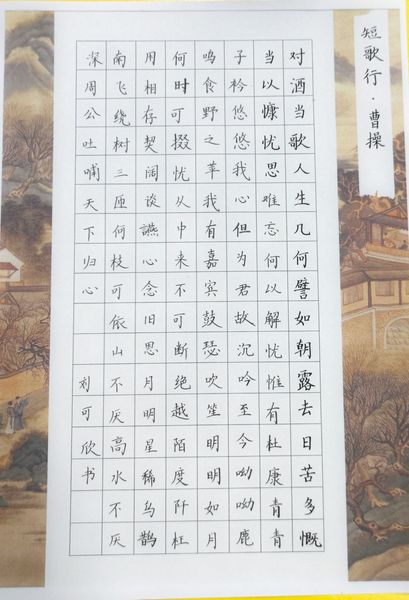 短歌行·曹操
对酒当歌人生几何譬如朝露去日苦多慨
当以慷忧思难忘何以解忧惟有杜康青青
子衿悠悠我心但为君故沉吟至今呦呦鹿
鸣食野之苹我有嘉宾鼓瑟吹笙明明如月
何时可掇忧从中来不可断绝越陌度阡枉
用相存契阔谈讌心念旧恩月明星稀乌鹊
南飞绕树三匝何枝可依山不厌高水不厌
深周公吐哺天下归心
刘可欣书